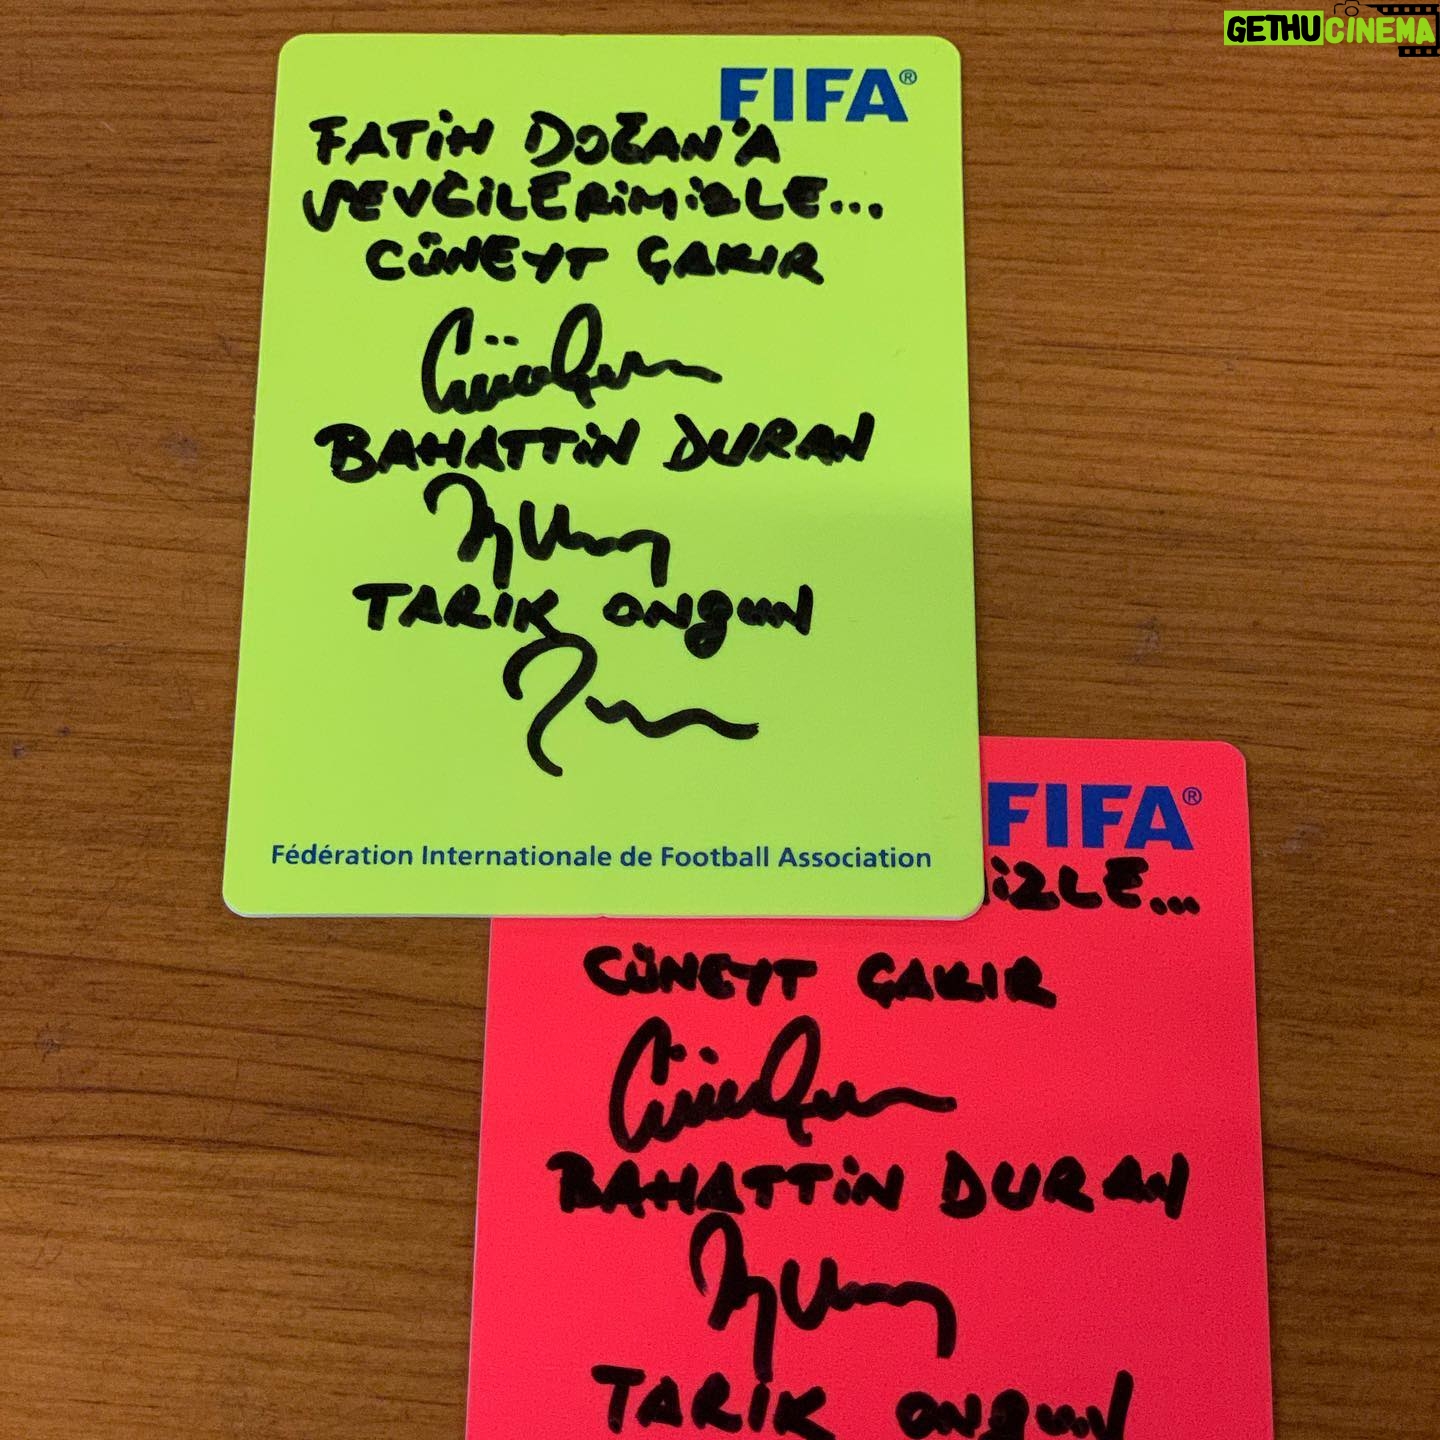 GETHUCINEMA
FIFA®
FATİH DOĞAN'A
SEVGİLERİMİZLE...
CÜNEYT ÇAKIR
BAHATTİN DURAN
TARIK ONGUN
Fédération Internationale de Football Association
FIFA®
İZLE...
CÜNEYT ÇAKIR
BAHATTİN DURAN
TARIK ONGUN